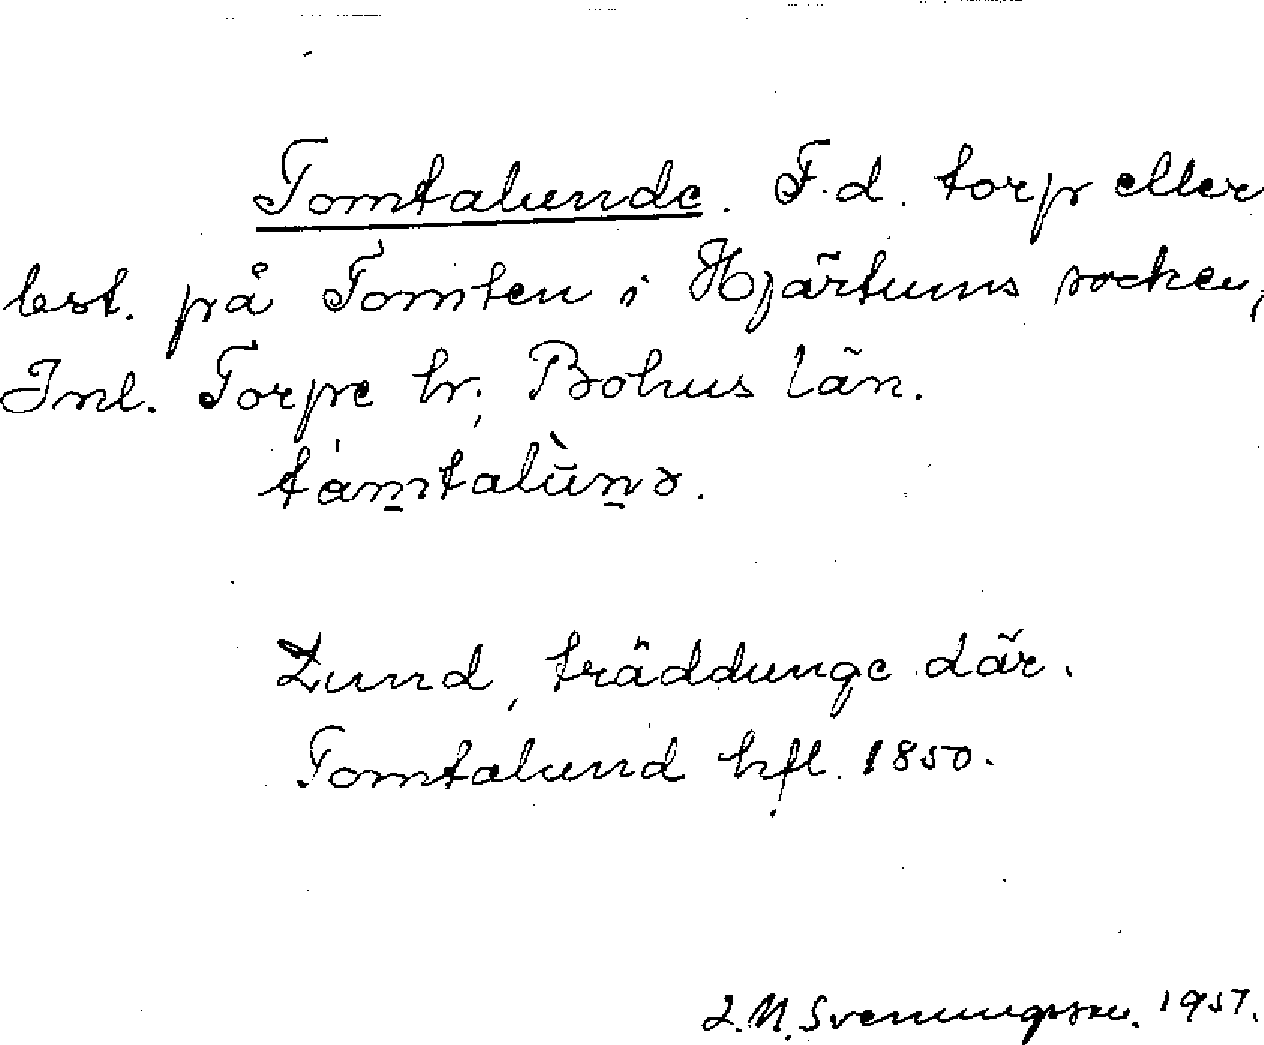 Tomtalunde. F.d. torp eller
lest. på Tomten i Hjärtums socken,
Inl. Torpe hr; Bohus län.
tåm̲talùn̲ə.
Lund, träddunge där.
Tomtalund hfl. 1850.
J.M. Svenungsson. 1957.